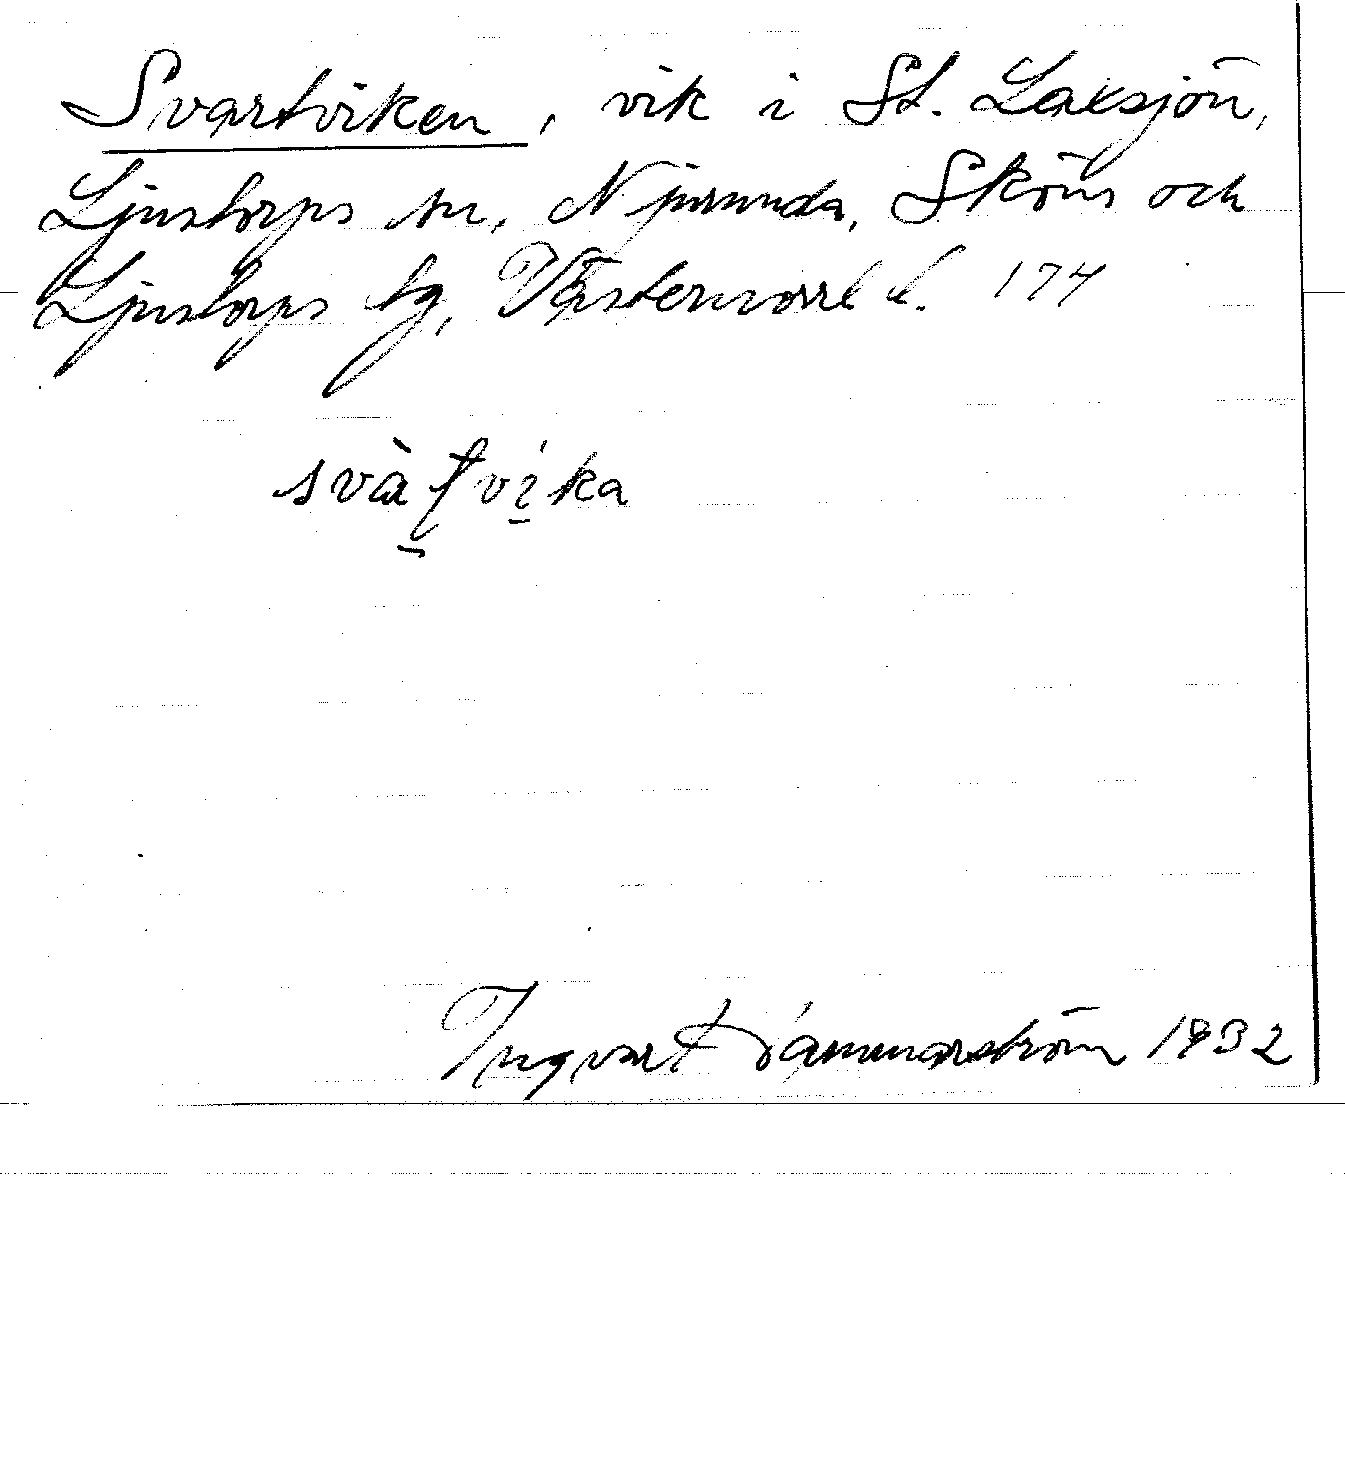 Svartviken, vik i St. Laxsjön,
Ljustorps sn, Njurunda, Sköns och
Ljustorps tg, Västernorrl l. 174
svàtvika
Ingvart Hammarström 1932